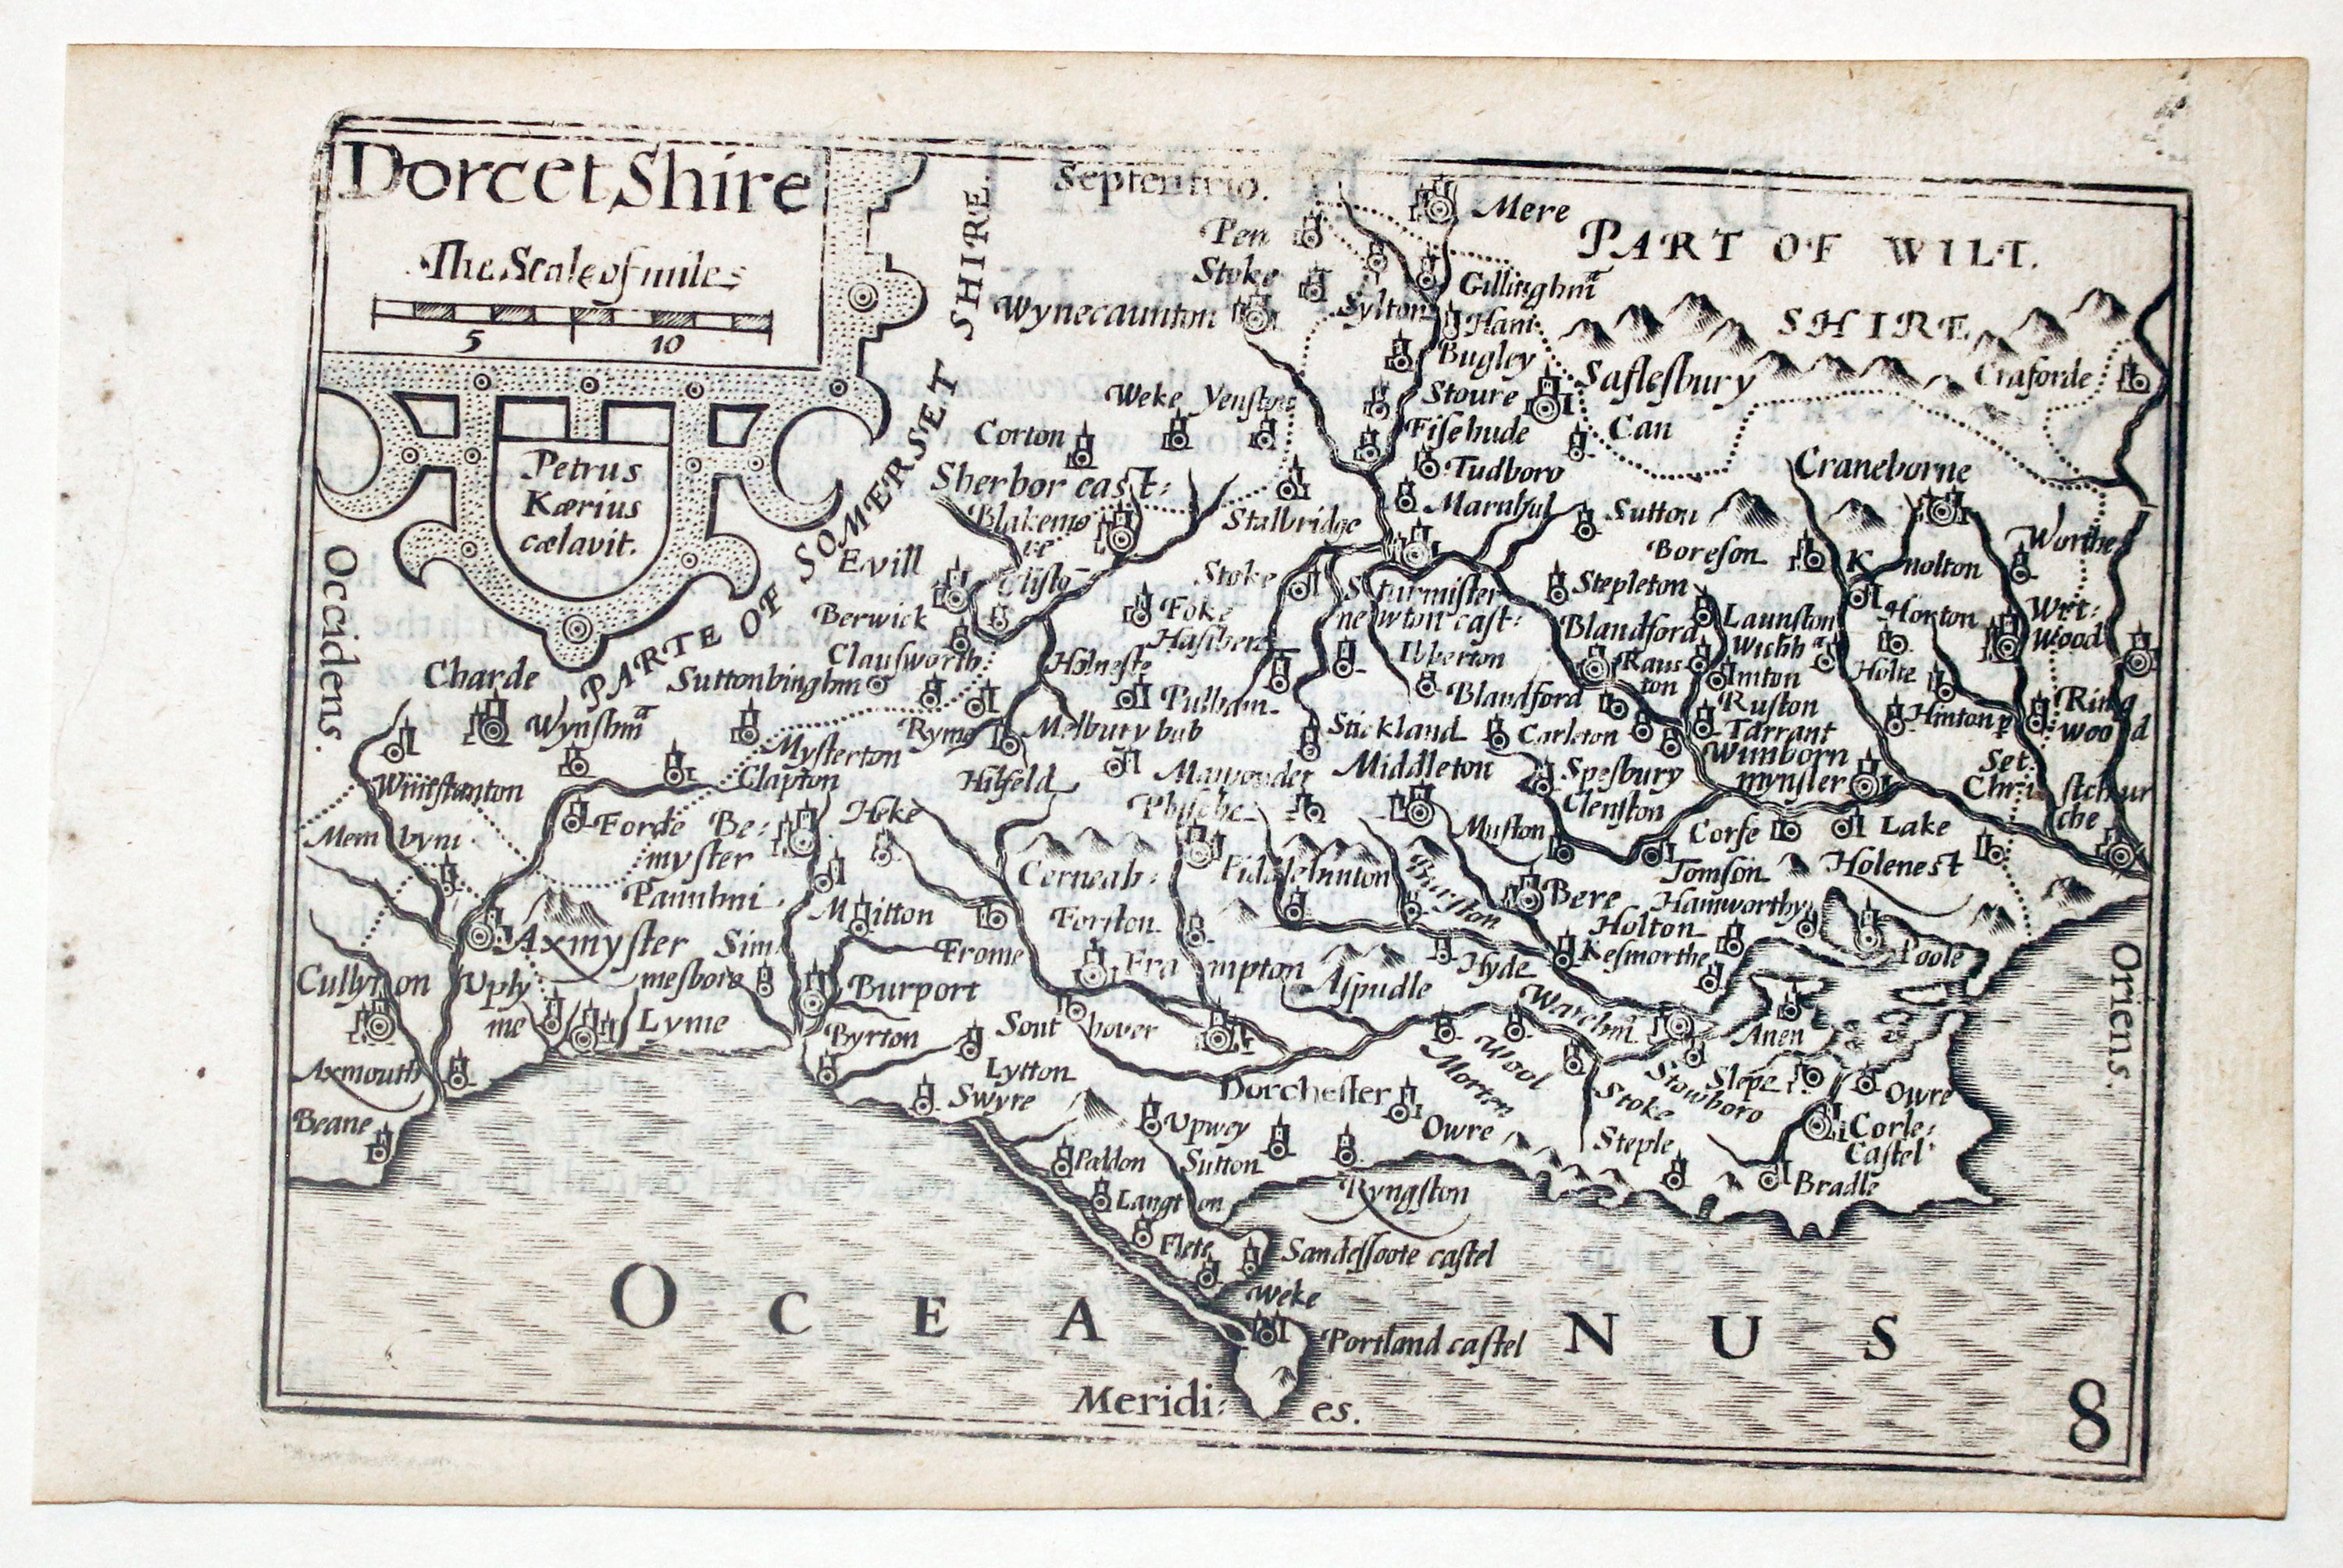 Dorcet Shire
The Scale of miles
5 10
Petrus
Kærius
cælavit.
Septentrio.
Occidens.
Oriens.
Meridi: es.
PARTE OF SOMERSET SHIRE.
PART OF WILT.
SHIRE
Mere
Pen
Stoke
Wynecaunton
Sylton
Gillinghm̃
Ham
Bugley
Saſlesbury
Craforde
Weke
Corton
Stoure
Fiſehude
Can
Tudboro
Marnhul
Craneborne
Sherbor cast:
Blakemo
re
Stalbridge
Sutton
Boreson
Worthe
Evill
Cliſto
Stoke
Sturmiſter
newton caſt:
Stepleton
K nolton
Berwick
Foke
Blandford
Launſton
Horton
Wet:
Wood
Clauſworth
Holneſte
Haſiber
Ibberton
Raus
ton
Holte
Charde
Suttonbinghm
Pulham
Blandford
Ruſton
Ring
wood
Wynſhm̃
Ryme
Melbury bub
Stickland
Carleton
Tarrant
Hinton
Myſterton
Clapton
Hilfeld
Middleton
Speſbury
Wimborn
mynſter
Set.
Chri ſtchur
che
Clenſton
Forde
Be:
myſter
Heke
Muſton
Corfe
Lake
Mem byri
Tomſon
Holenest
Cerneab:
Piddlehinton
Burſton
Bere
Hamworthy
Forſton
Holton
Axmyſter
Sim
mesboro
Frome
Fra mpton
Hyde
Keſmorthe
Poole
Cullyton
Uply
me
Lyme
Burport
Aſpudle
Warehm̃
Anen
Byrton
Sout hover
Axmouth
Lytton
Dorcheſter
Morten
Wool
Stoke
Stowboro
Slepe
Owre
Beane
Swyre
Upwey
Owre
Steple
Corfe:
Caſtel
Sutton
Langt on
Ryngſton
Bradle
Flete
Sandeſfoote caſtel
Weke
Portland caſtel
OCEANUS
8